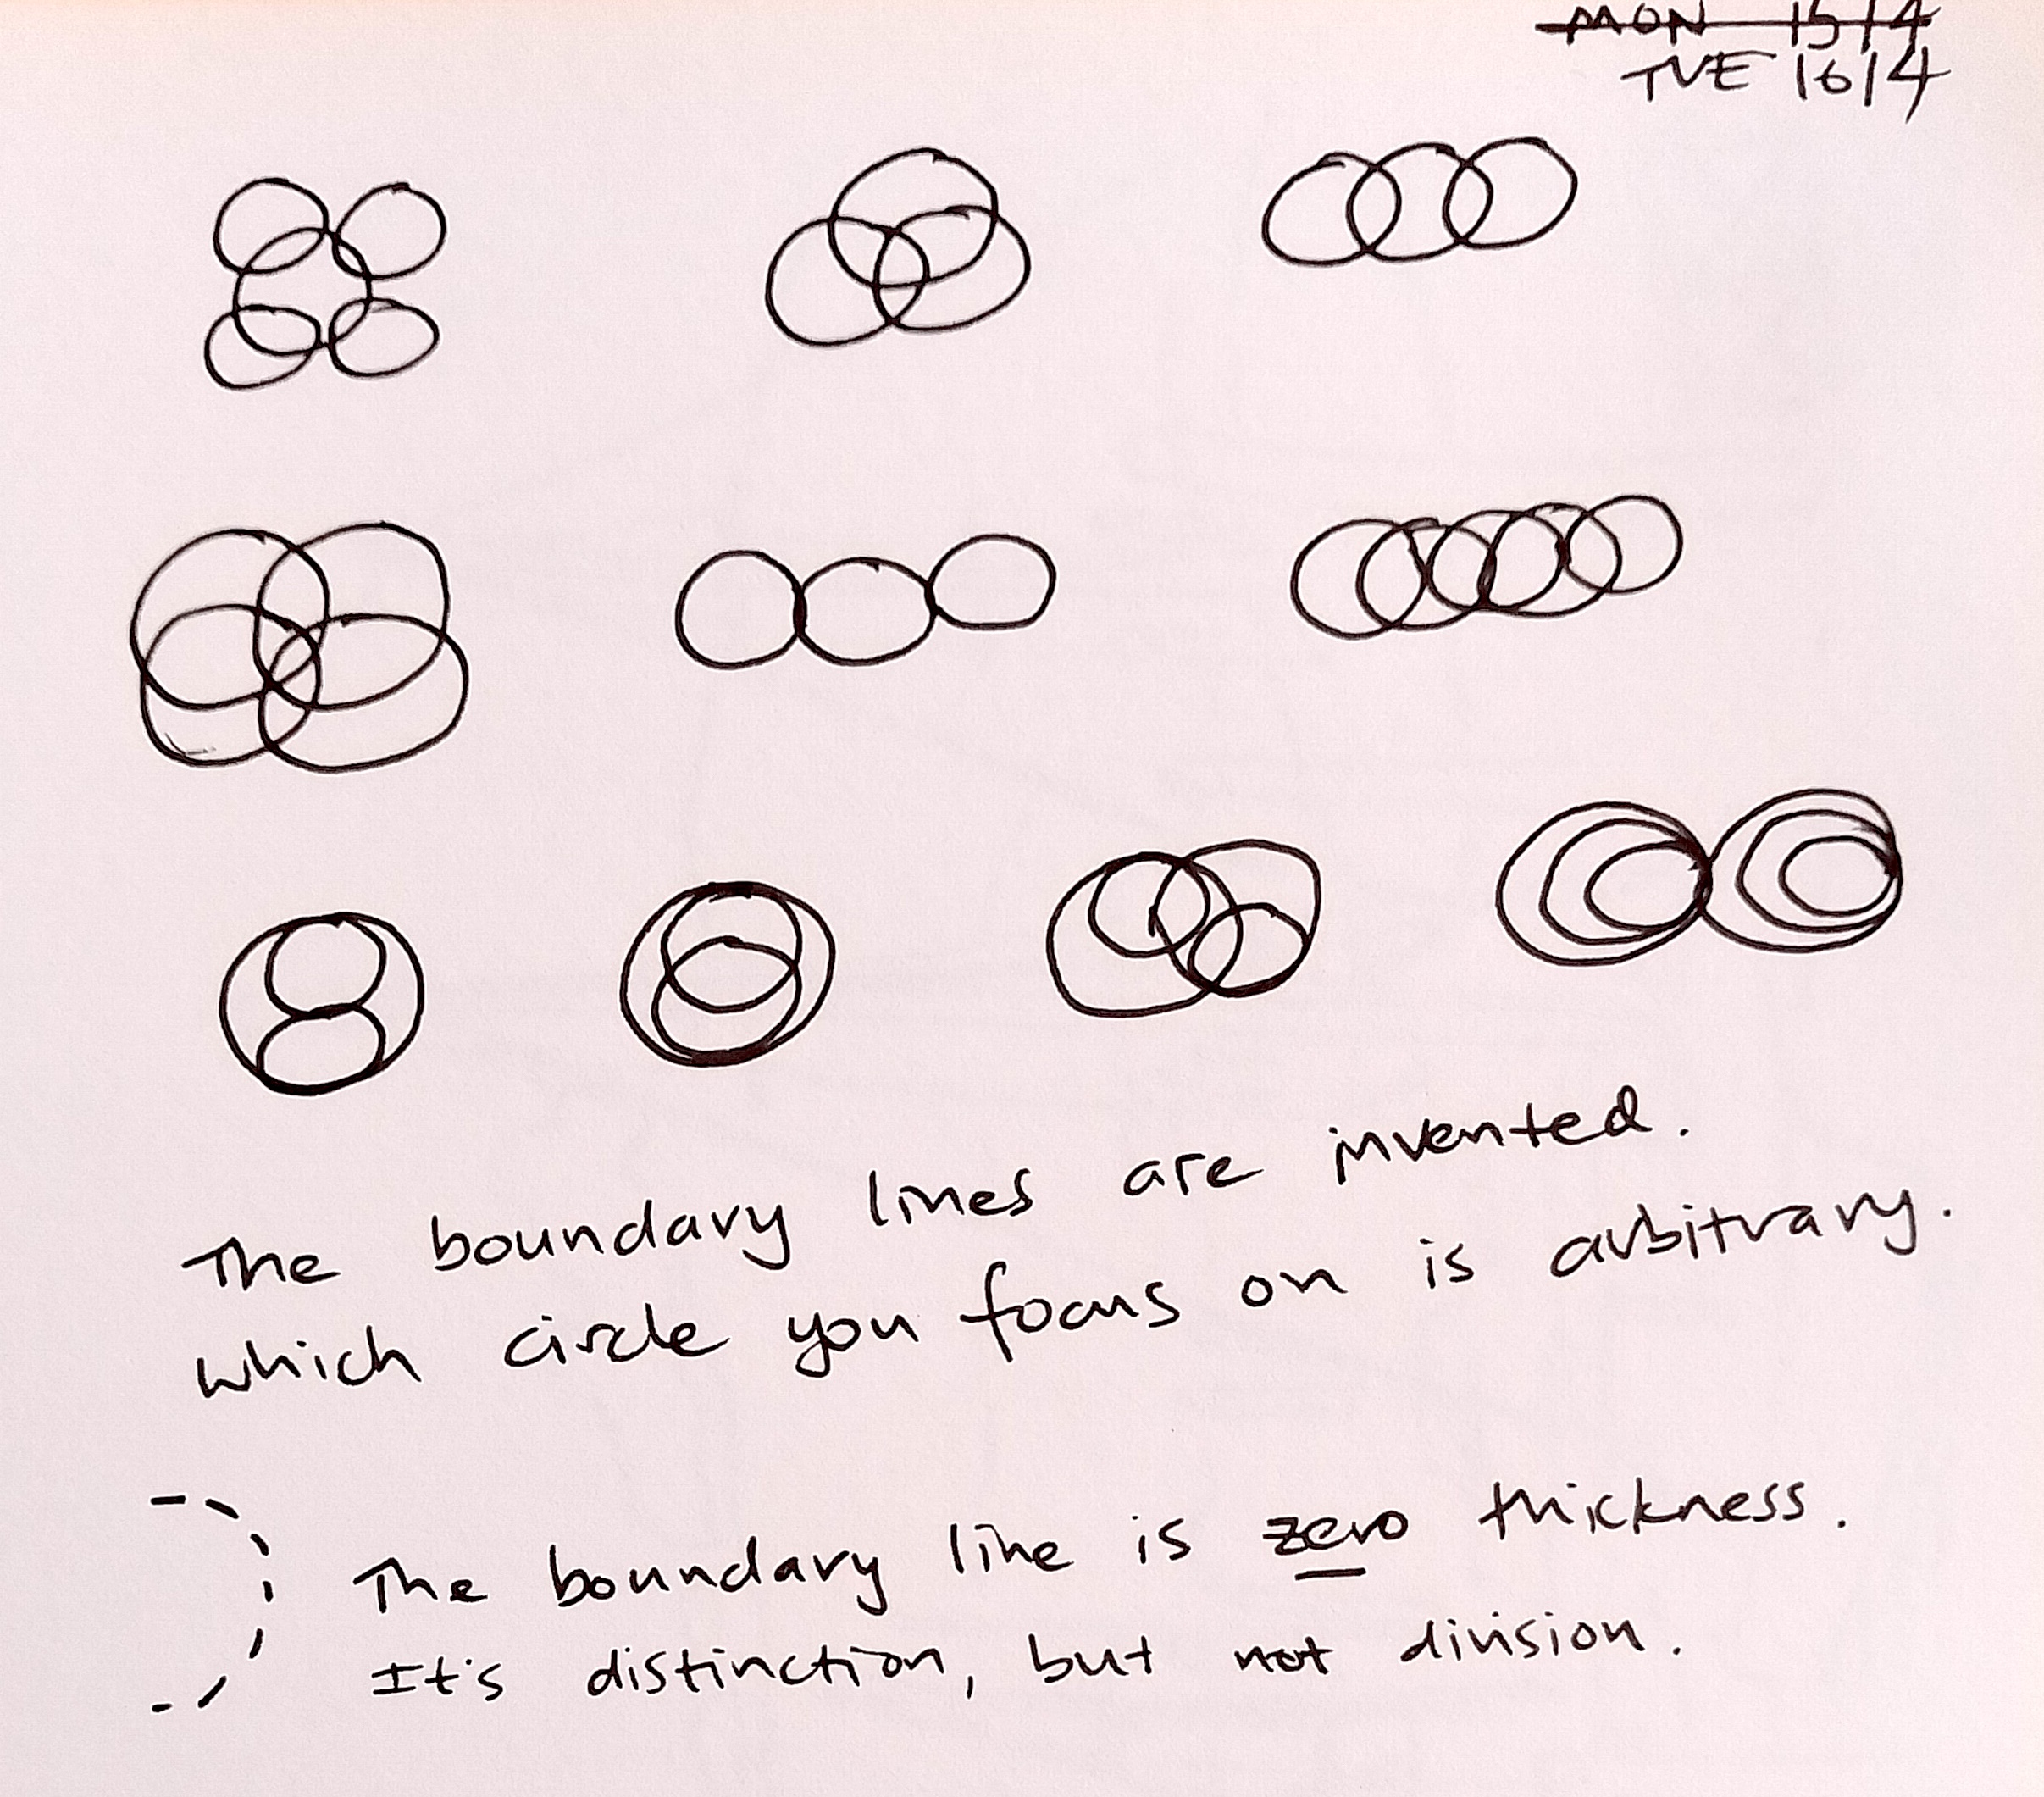 MON 15/4
TUE 16/4
The boundary lines are invented.
which circle you focus on is arbitrary.
The boundary line is zero thickness.
It's distinction, but not division.